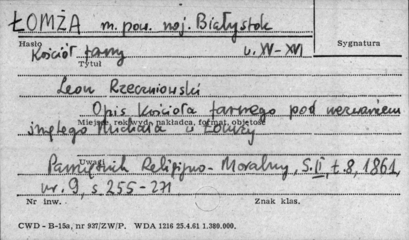 ŁOMŻA m. pow. woj. Białystok
Hasło
Sygnatura
Kościół farny w. XV-XVI
Tytuł
Leon Rzeczniowski
Opis Kościoła farnego pod wezwaniem
Miejsce, rok wyd. nakładca, format, objętość
świętego Michała w Łomży
Uwagi
Pamiętnik Religijno-Moralny, S. II, t. 8, 1861,
nr. 9, s. 255-271
Nr inw.
Znak klas.
CWD - B-15a, nr 937/ZW/P. WDA 1216 25.4.61 1.380.000.